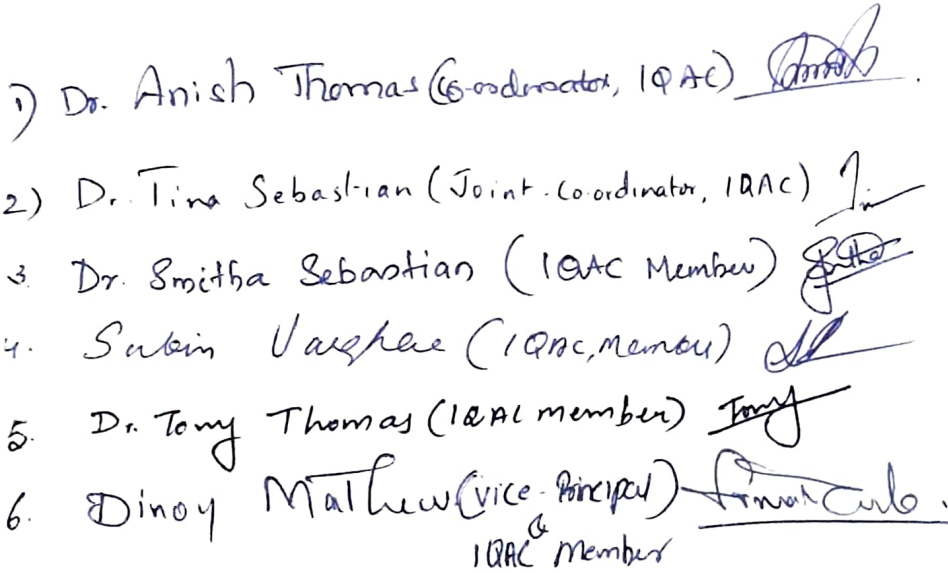 1) Dr. Anish Thomas (Co-ordinator, IQAC)
2) Dr. Tina Sebastian (Joint. Co.ordinator, IQAC)
3. Dr. Smitha Sebastian (IQAC Member)
4. Subin Varghese (IQAC, Member)
5. Dr. Tony Thomas (IQAC member) Tony
6. Dinoy Mathew (Vice-Principal)
&
IQAC Member